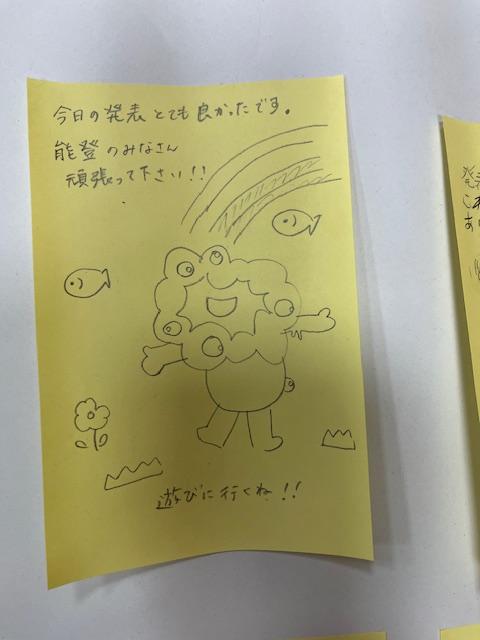 今日の発表とても良かったです。
能登のみなさん
頑張って下さい!!
遊びに行くね!!
発表